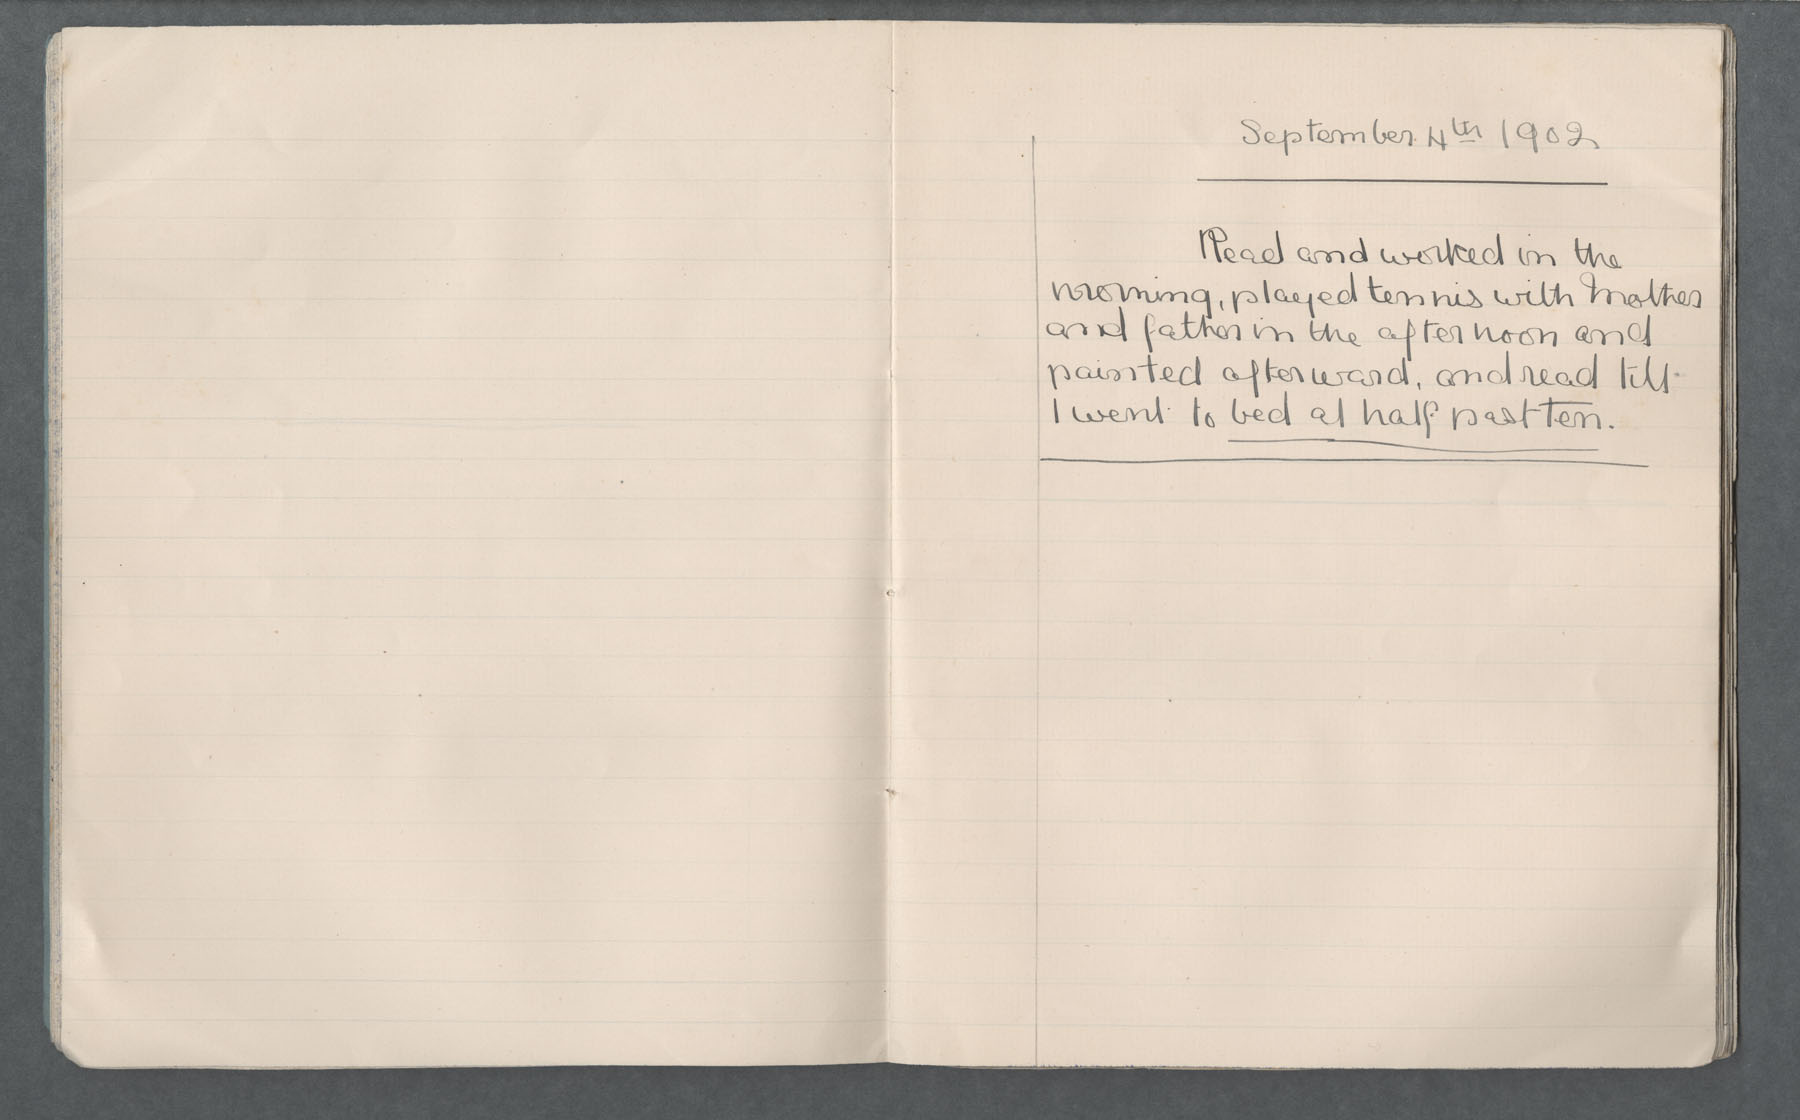 September 4th 1902
Read and worked in the
morning, played tennis with Mother
and father in the afternoon and
painted afterward, and read till
I went to bed at half past ten.